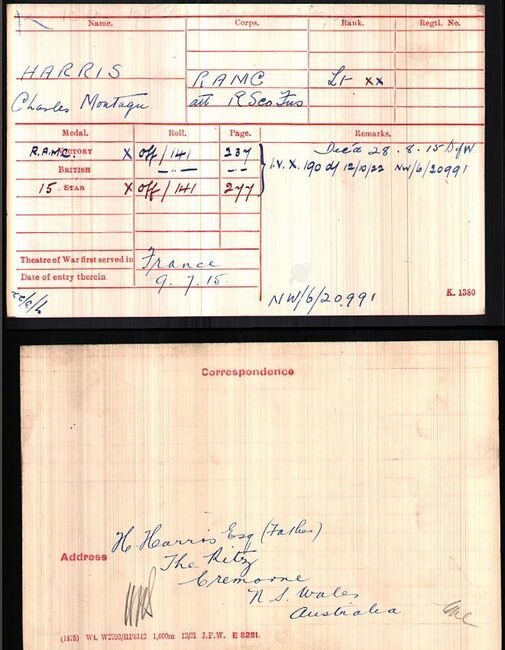 Name. Corps. Rank. Regtl. No.
HARRIS RAMC Lt xx
Charles Montagu att R Sco Fus
Medal. Roll. Page. Remarks.
R.A.M.C. VICTORY X off/141 237 Dec'd 28.8.15 D of W
BRITISH —"— —"— I.V. X. 190 d/ 12/10/22 NW/6/20991
15 STAR X off/141 277
Theatre of War first served in France
Date of entry therein 9.7.15.
NW/6/20991 K. 1380
Correspondence
H. Harris Esq (Father)
Address The Ritz
Cremorne
N S. Wales
Australia
(1475) Wt. W2793/RP8142 1,000m 12/21 J.F.W. E 8281.